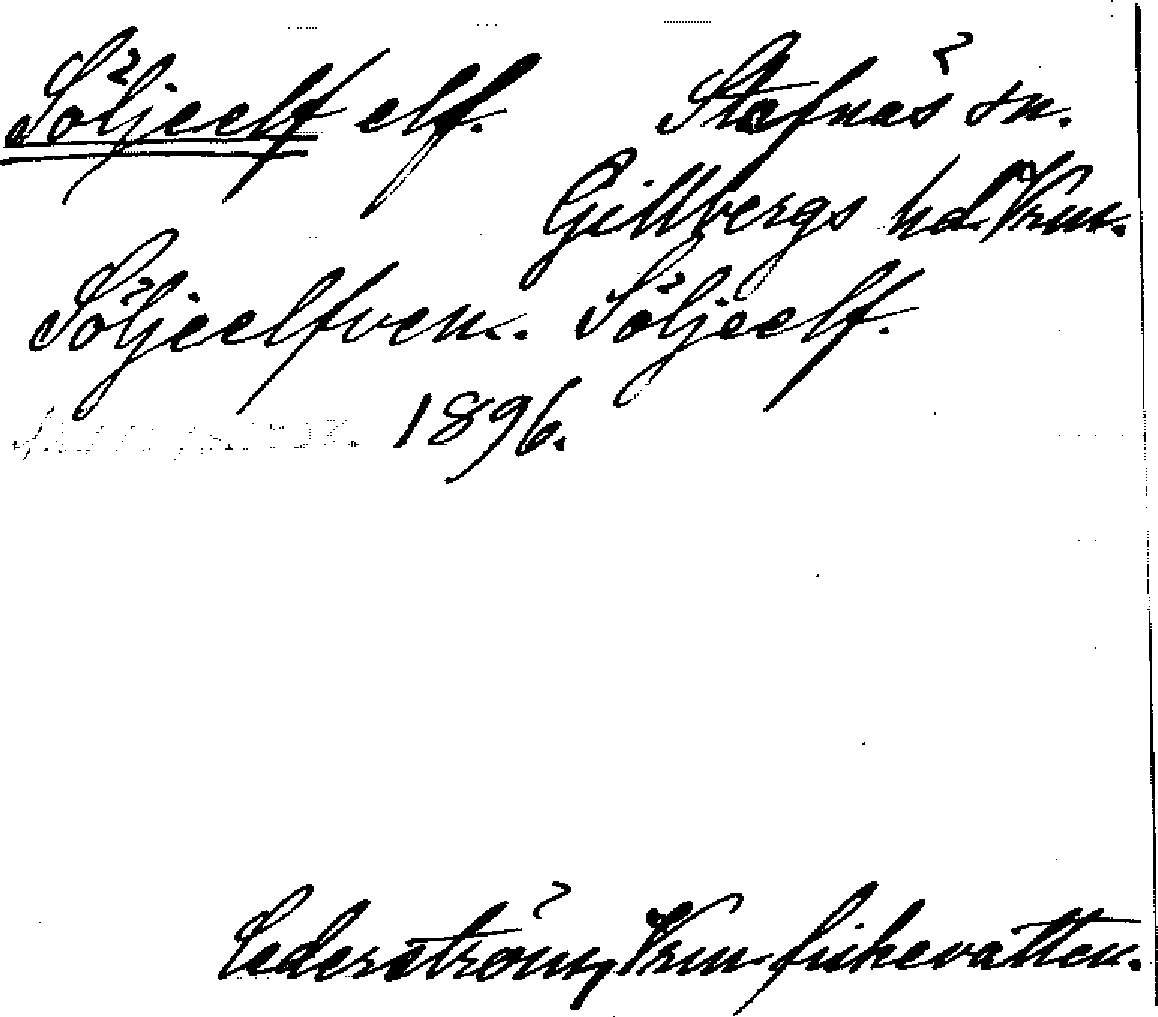 Söljeelf elf. Stafnäs sn.
Gillbergs hd. Vrm.
Söljeelfven. Söljeelf.
1896.
Cederström, Vrm fiskevatten.